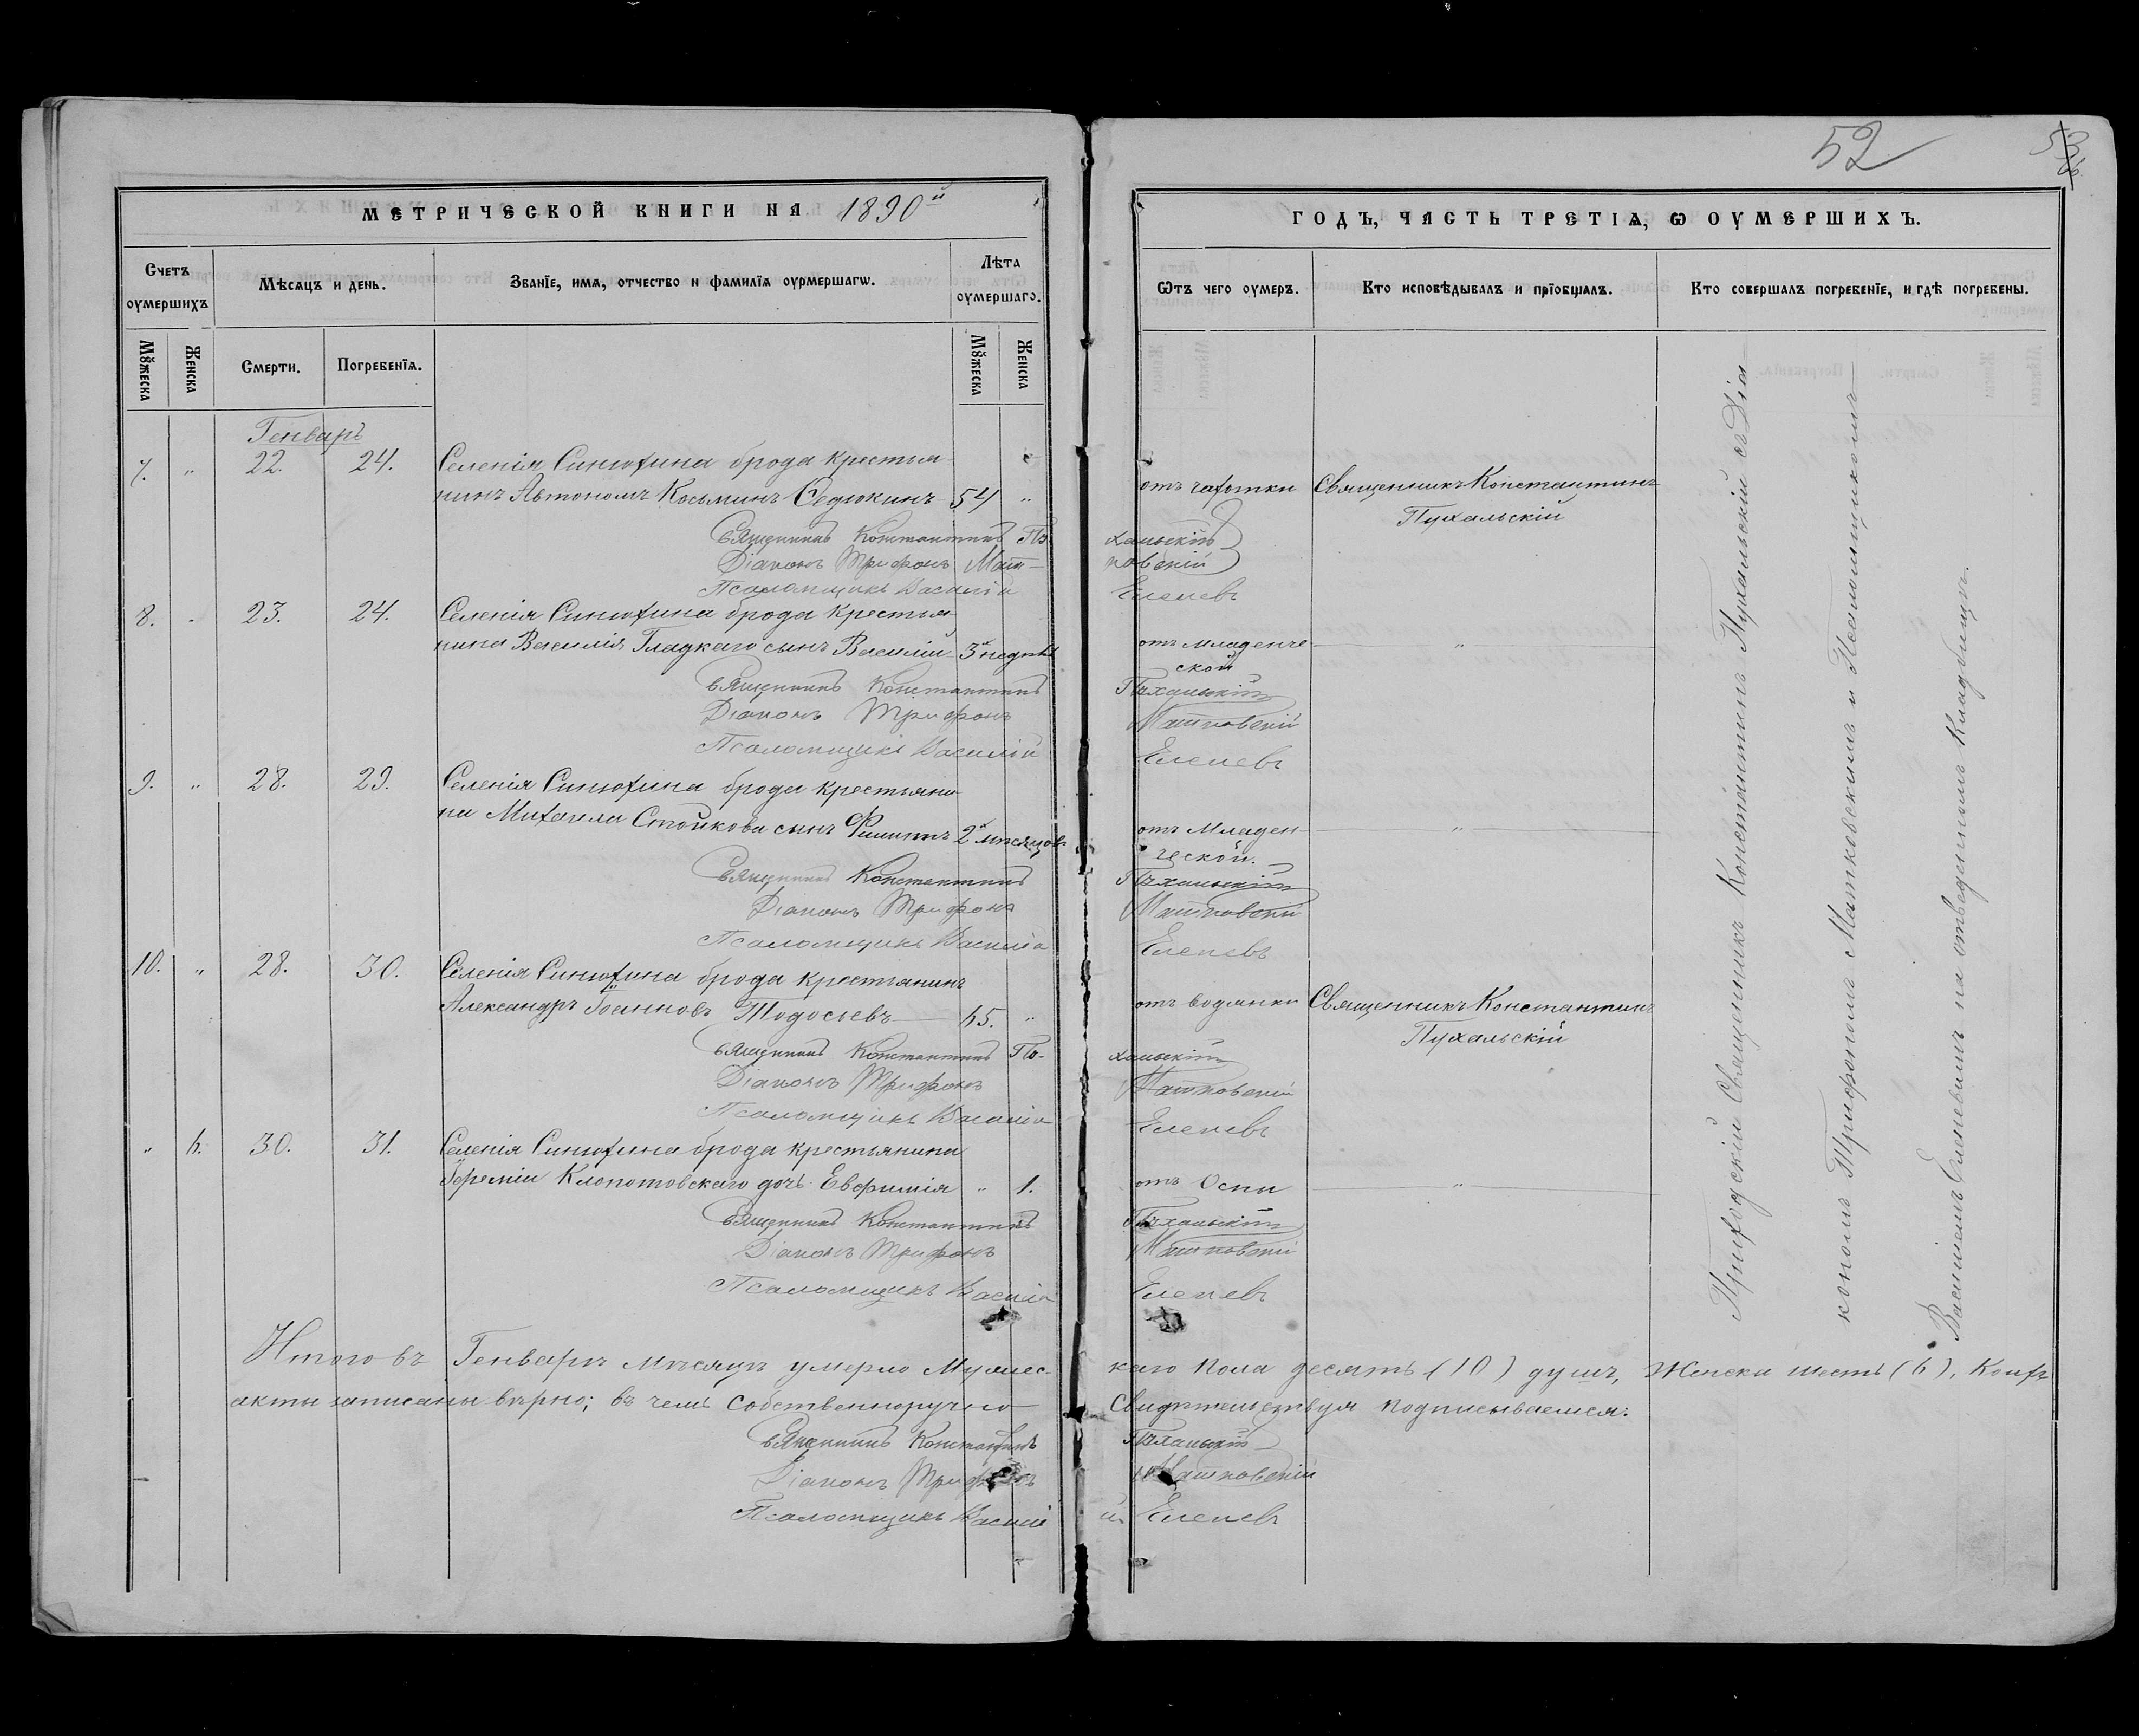 52
МЕТРИЧЕСКОЙ КНИГИ НА 1890й
ГОДЪ, ЧАСТЬ ТРЕТІѦ, Ѡ ОУМЕРШИХЪ.
Счетъ оумершихъ
Мѣсяцъ и день.
Званїе, имѧ, отчество и фамилїѧ оурмершагѡ.
Лѣта оумершаго.
Ѿтъ чего оумеръ.
Кто исповѣдывалъ и прїобщалъ.
Кто совершалъ погребенїе, и гдѣ погребены.
Мꙋжеска
Женска
Смерти.
Погребенїѧ.
Мꙋжеска
Женска
Генварь
7. „ 22. 24. Селенія Синюхина брода крестья
нинъ Автономъ Косьминъ Седюкинъ 54 „ отъ чахотки Священникъ Константинъ
Пухальскій
Священникъ Константинъ Пухальскій
Діаконъ Трифонъ Матковскій
Псаломщикъ Василій Еленевъ
8. „ 23. 24. Селенія Синюхина брода крестья
нина Василія Гладкаго сынъ Василій 3хъ недѣль отъ младенче
ской „
Священникъ Константинъ Пухальскій
Діаконъ Трифонъ Матковскій
Псаломщикъ Василій Еленевъ
9. „ 28. 29. Селенія Синюхина брода крестьяни
на Михаила Стойкова сынъ Филиппъ 2хъ мѣсяцовъ отъ Младен
ческой. „
Священникъ Константинъ Пухальскій
Діаконъ Трифонъ Матковскій
Псаломщикъ Василій Еленевъ
10. „ 28. 30. Селенія Синюхина брода крестьянинъ
Александръ Іоанновъ Тодосьевъ 65. „ отъ водянки Священникъ Константинъ
Пухальскій
Священникъ Константинъ Пухальскій
Діаконъ Трифонъ Матковскій
Псаломщикъ Василій Еленевъ
„ 6. 30. 31. Селенія Синюхина брода крестьянина
Іереміи Клопотовскаго дочь Евфимія „ 1. отъ Оспы „
Священникъ Константинъ Пухальскій
Діаконъ Трифонъ Матковскій
Псаломщикъ Василій Еленевъ
Приходскій Священникъ Константинъ Пухальскій съ Діа
кономъ Трифономъ Матковскимъ и Псаломщикомъ
Василіемъ Еленевымъ на отведенномъ Кладбищѣ.
Итого въ Генварѣ мѣсяцѣ умерло Мужес-каго пола десять (10) душъ, Женска шесть (6),
акты записаны вѣрно; въ чемъ собственноручно свидѣтельствуя подписываемся:
Священникъ Константинъ Пухальскій
Діаконъ Трифонъ Матковскій
Псаломщикъ Василій Еленевъ